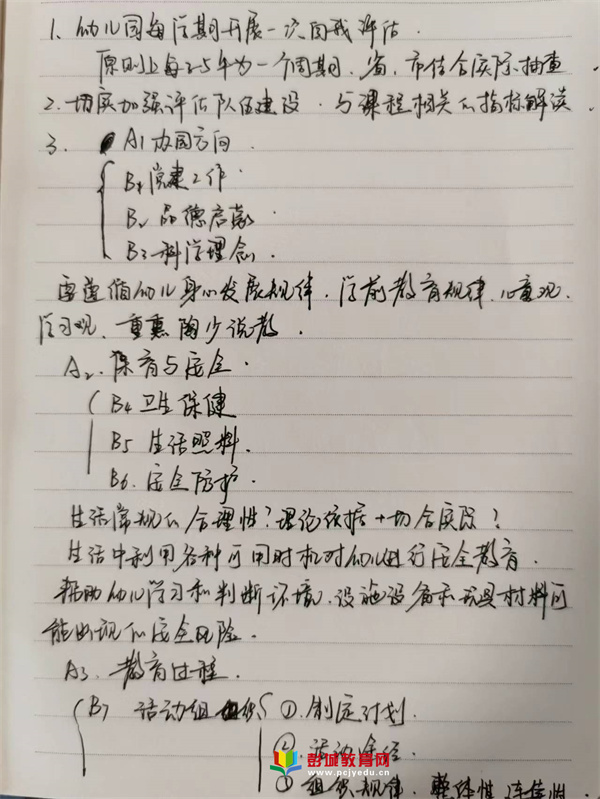 1、幼儿园每学期开展一次自我评估
原则上每3-5年为一个周期,省,市结合实际抽查
2.切实加强评估队伍建设.与课程相关的指标解读.
3. A1办园方向.
B1党建工作.
B2 品德启蒙
B3科学理念.
要遵循幼儿身心发展规律.学前教育规律.儿童观.
学习观、重熏陶少说教.
A2.保育与安全.
B4卫生保健
B5 生活照料.
B6.安全防护.
生活常规的合理性?理论依据+切合实际?
生活中利用各种可用时机对幼儿进行安全教育.
帮助幼儿学习和判断环境、设施设备和玩具材料可
能出现的安全风险.
A3.教育过程.
B7 活动组织 ①.制定计划.
②.活动
③组织规律.整体性 连续性.
彭城教育网
www.pcjyedu.cn